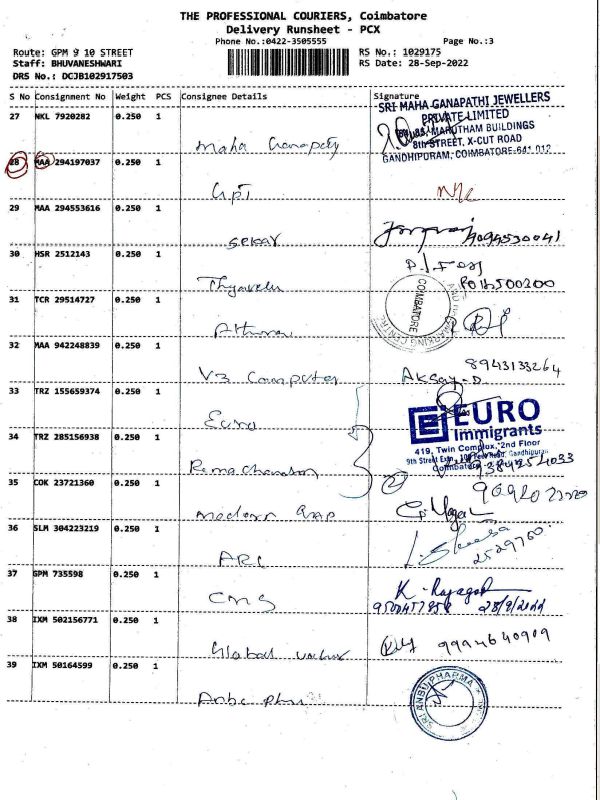 THE PROFESSIONAL COURIERS, Coimbatore
Delivery Runsheet - PCX
Phone No.:0422-3505555
Page No.:3
Route: GPM 9 10 STREET
Staff: BHUVANESHWARI
DRS No.: DCJB102917503
RS No.: 1029175
RS Date: 28-Sep-2022
S No Consignment No Weight PCS Consignee Details Signature
27 NKL 7920282 0.250 1 Maha Ganapaty
SRI MAHA GANAPATHI JEWELLERS
PRIVATE LIMITED
MARUTHAM BUILDINGS
8th STREET, X-CUT ROAD
GANDHIPURAM, COIMBATORE-641 012
28 MAA 294197037 0.250 1
29 MAA 294553616 0.250 1 Sekar
9094530041
30 HSR 2512143 0.250 1
31 TCR 29514727 0.250 1
COIMBATORE
32 MAA 942248839 0.250 1 V3 Computer
8943133264
33 TRZ 155659374 0.250 1 Euro
EURO
Immigrants
419, Twin Complux, 2nd Floor
9th Street Extn., 100 Feet Road, Gandhipuram
Coimbatore
34 TRZ 285156938 0.250 1 Ramachandran
35 COK 23721360 0.250 1
36 SLM 304223219 0.250 1 ARC
2529760
37 GPM 735598 0.250 1 CNS
K. Rajagopal
28/9/2022
38 IXM 502156771 0.250 1 Global
9994640909
39 IXM 50164599 0.250 1
SRI ANBU PHARMA